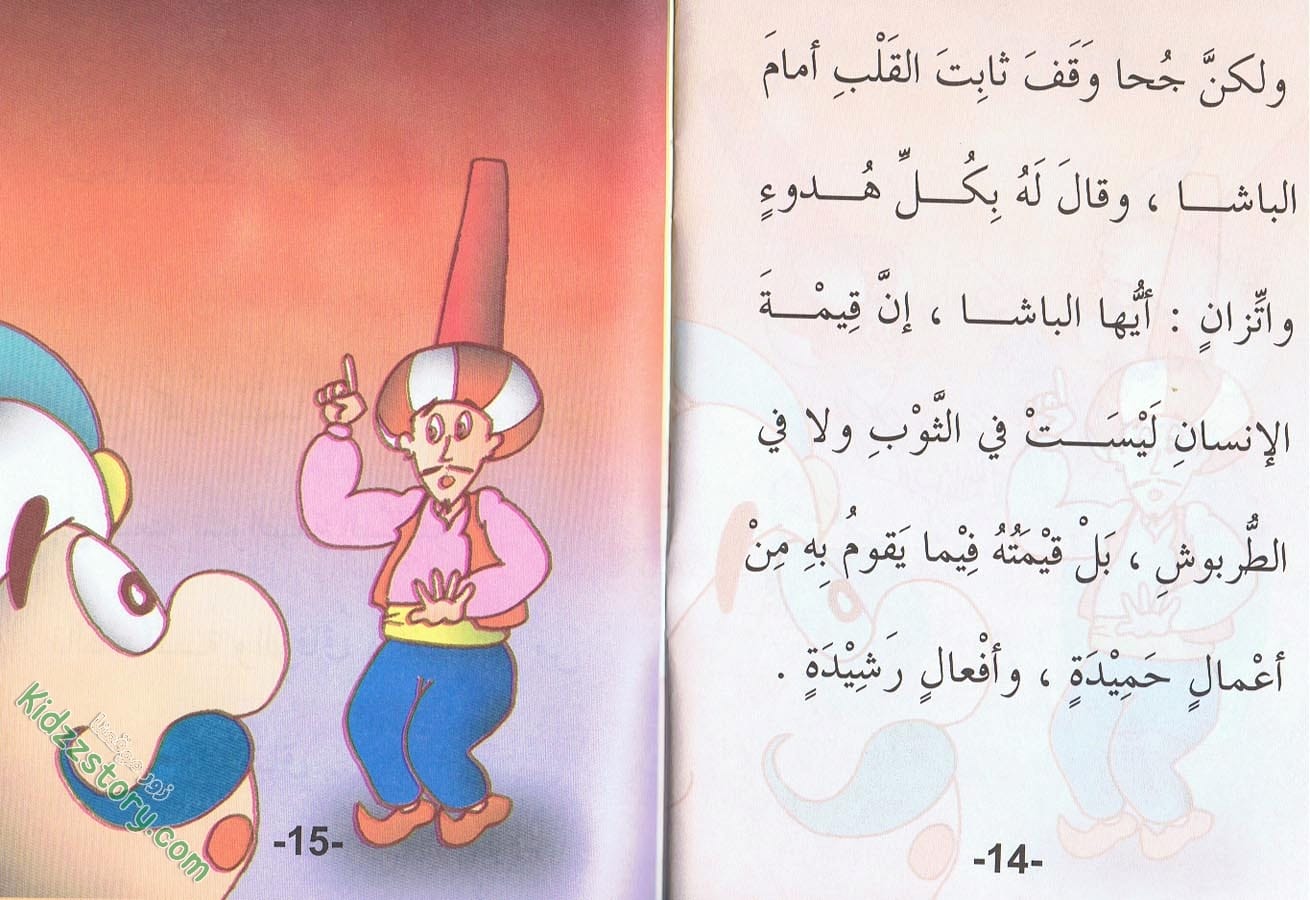 ولكنَّ جُحا وَقَفَ ثابِتَ القَلْبِ أمامَ
الباشـــا ، وقالَ لَهُ بِكُـــلِّ هُـــدوءٍ
واتِّزانٍ : أيُّها الباشـــا ، إنَّ قِيمْـــةَ
الإنسانِ لَيْسَـــتْ في الثَّوْبِ ولا في
الطُّربوشِ ، بَلْ قيْمَتُهُ فِيْما يَقومُ بِهِ مِنْ
أعْمالٍ حَمِيْدَةٍ ، وأفْعالٍ رَشِيْدَةٍ .
-14-
-15-
زوروا موقعنا
Kidzzstory.com